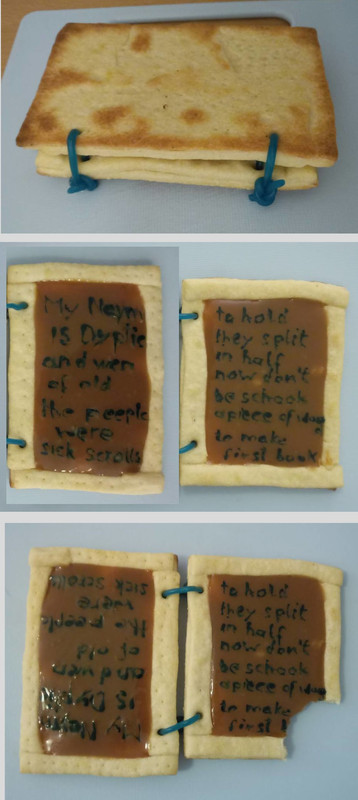 My Naym
is Dyptic
and wen
of old
the peeple
were
sick scrolls
to hold
they split
in half
now don't
be schook
apiece of
to make
first book
My Naym
is Dyptic
and wen
of old
the peeple
were
sick scrolls
to hold
they split
in half
now don't
be schook
apiece of
to make
first